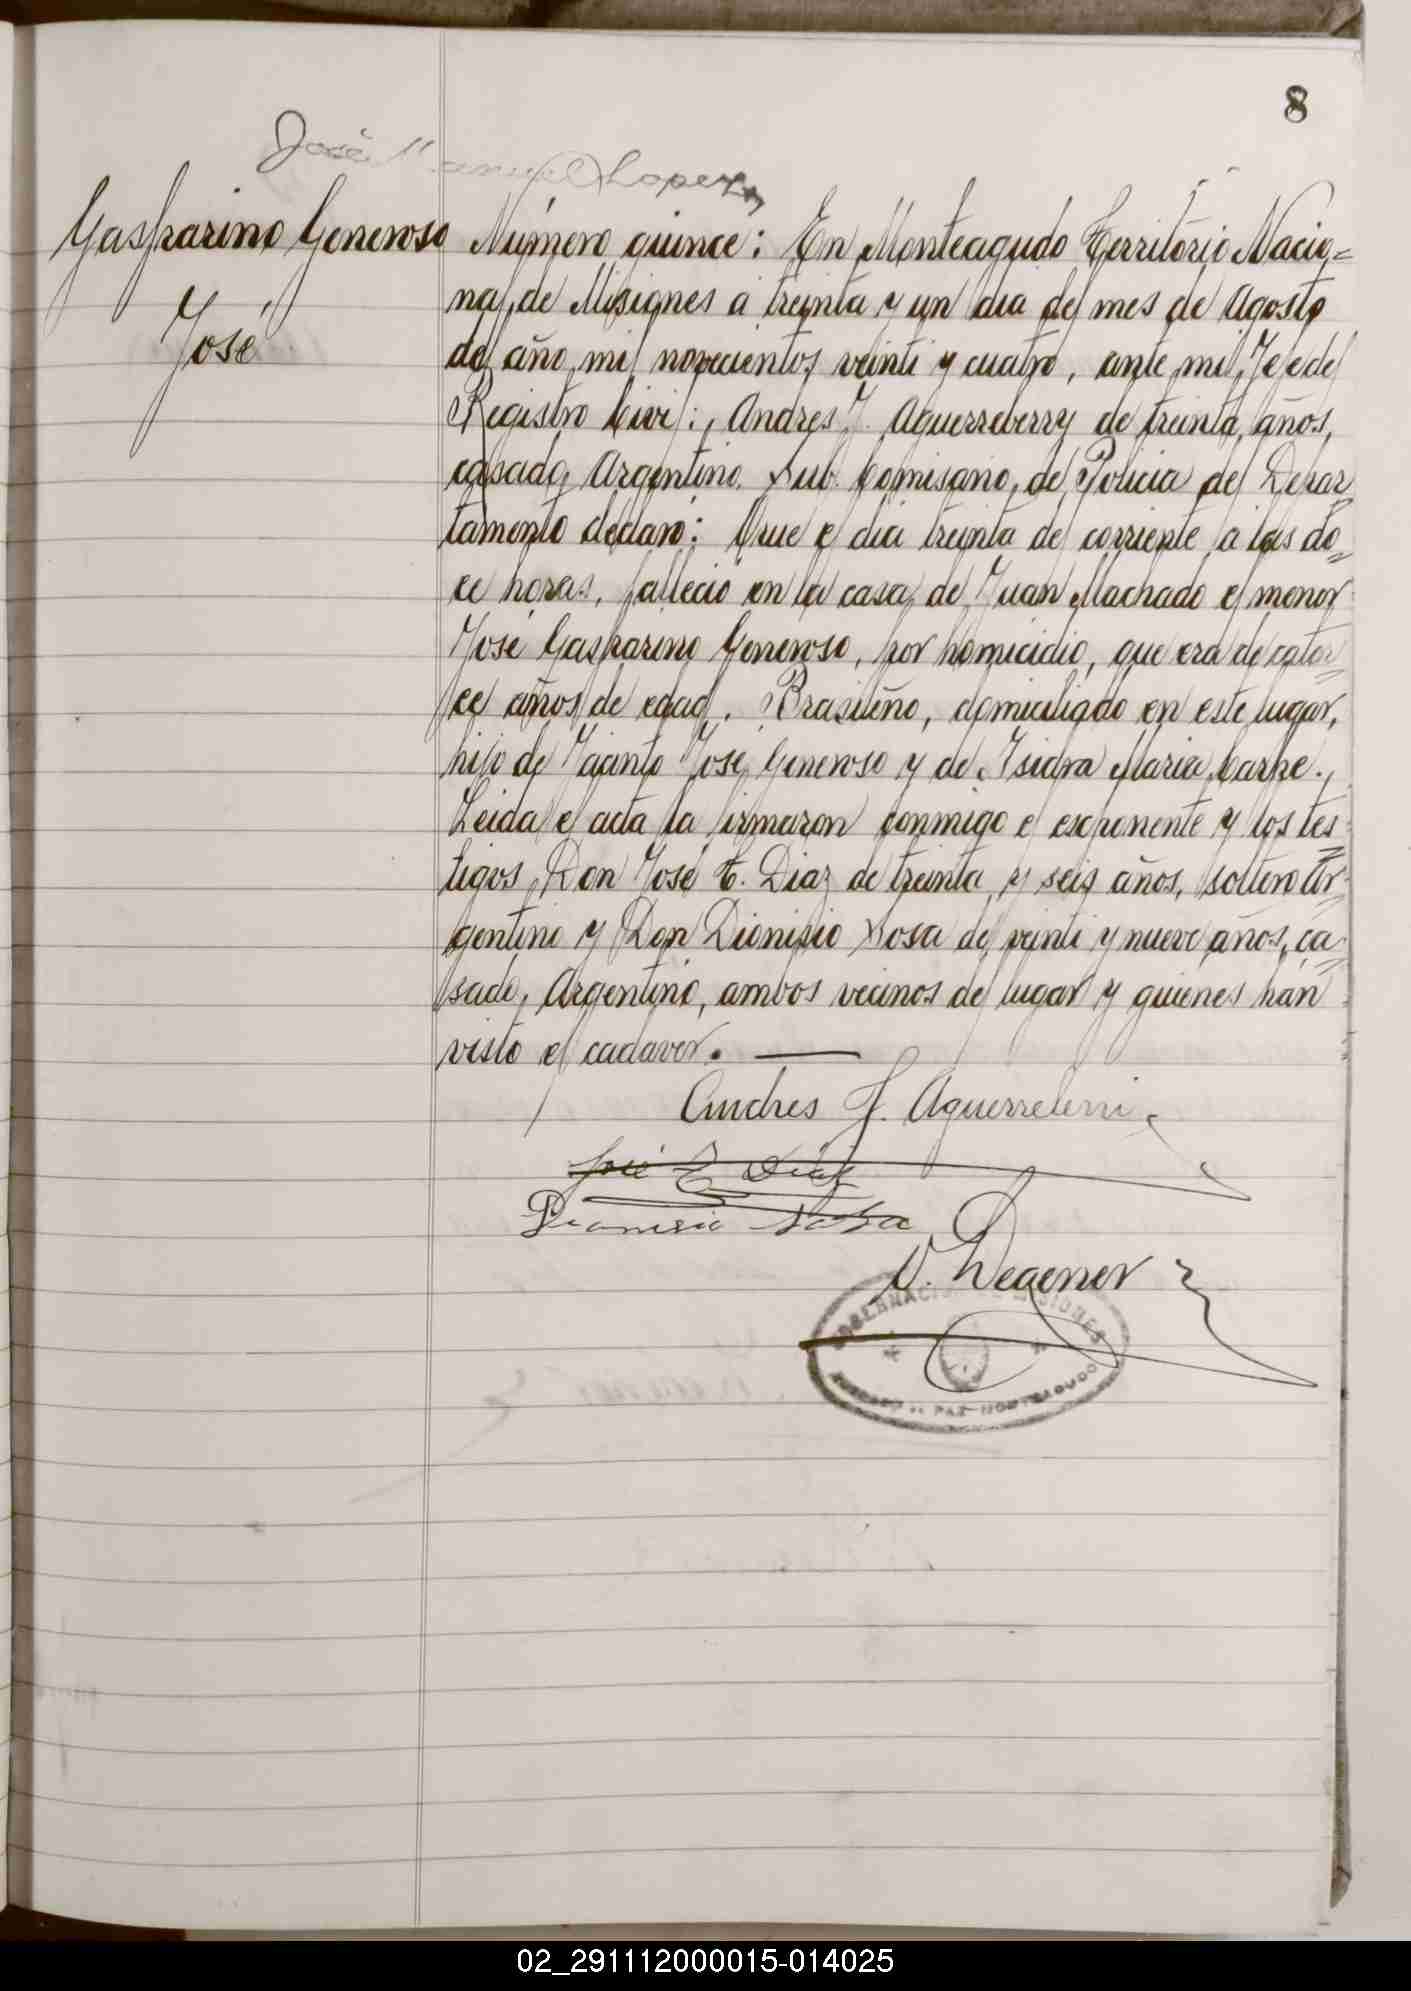 8
José Manuel Lopez
Gasparino Generoso
José
Número quince: En Monteagudo Território Nacio=
nal de Misiones a treinta y un dia del mes de Agosto
del año mil novecientos veinti y cuatro, ante mi, Jefe del
Registro Civil: Andres J. Aguerreberry de treinta años,
casado, Argentino, Sub. Comisario, de Policia del Depar=
tamento declaró: Que el dia treinta del corriente a las do=
ce horas, falleció en la casa de Juan Machado el menor
José Gasparino Generoso, por homicidio, que era de cator=
ce años de edad, Brasileño, domiciliado en este lugar,
hijo de Jacinto José Generoso y de Isidra Maria Carpe.
Leida el acta la firmaron conmigo el exponente y los tes=
tigos Don José E. Diaz de treinta y seis años, soltero Ar=
gentino y Don Dionisio Sosa de veinti y nueve años, ca=
sado, Argentino, ambos vecinos del lugar y quienes han
visto el cadaver. —
Andres J. Aguerreberri
José E. Diaz
Dionisio Sosa
N. Degener
GOBERNACION DE MISIONES
JUZGADO DE PAZ MONTEAGUDO
02_291112000015-014025